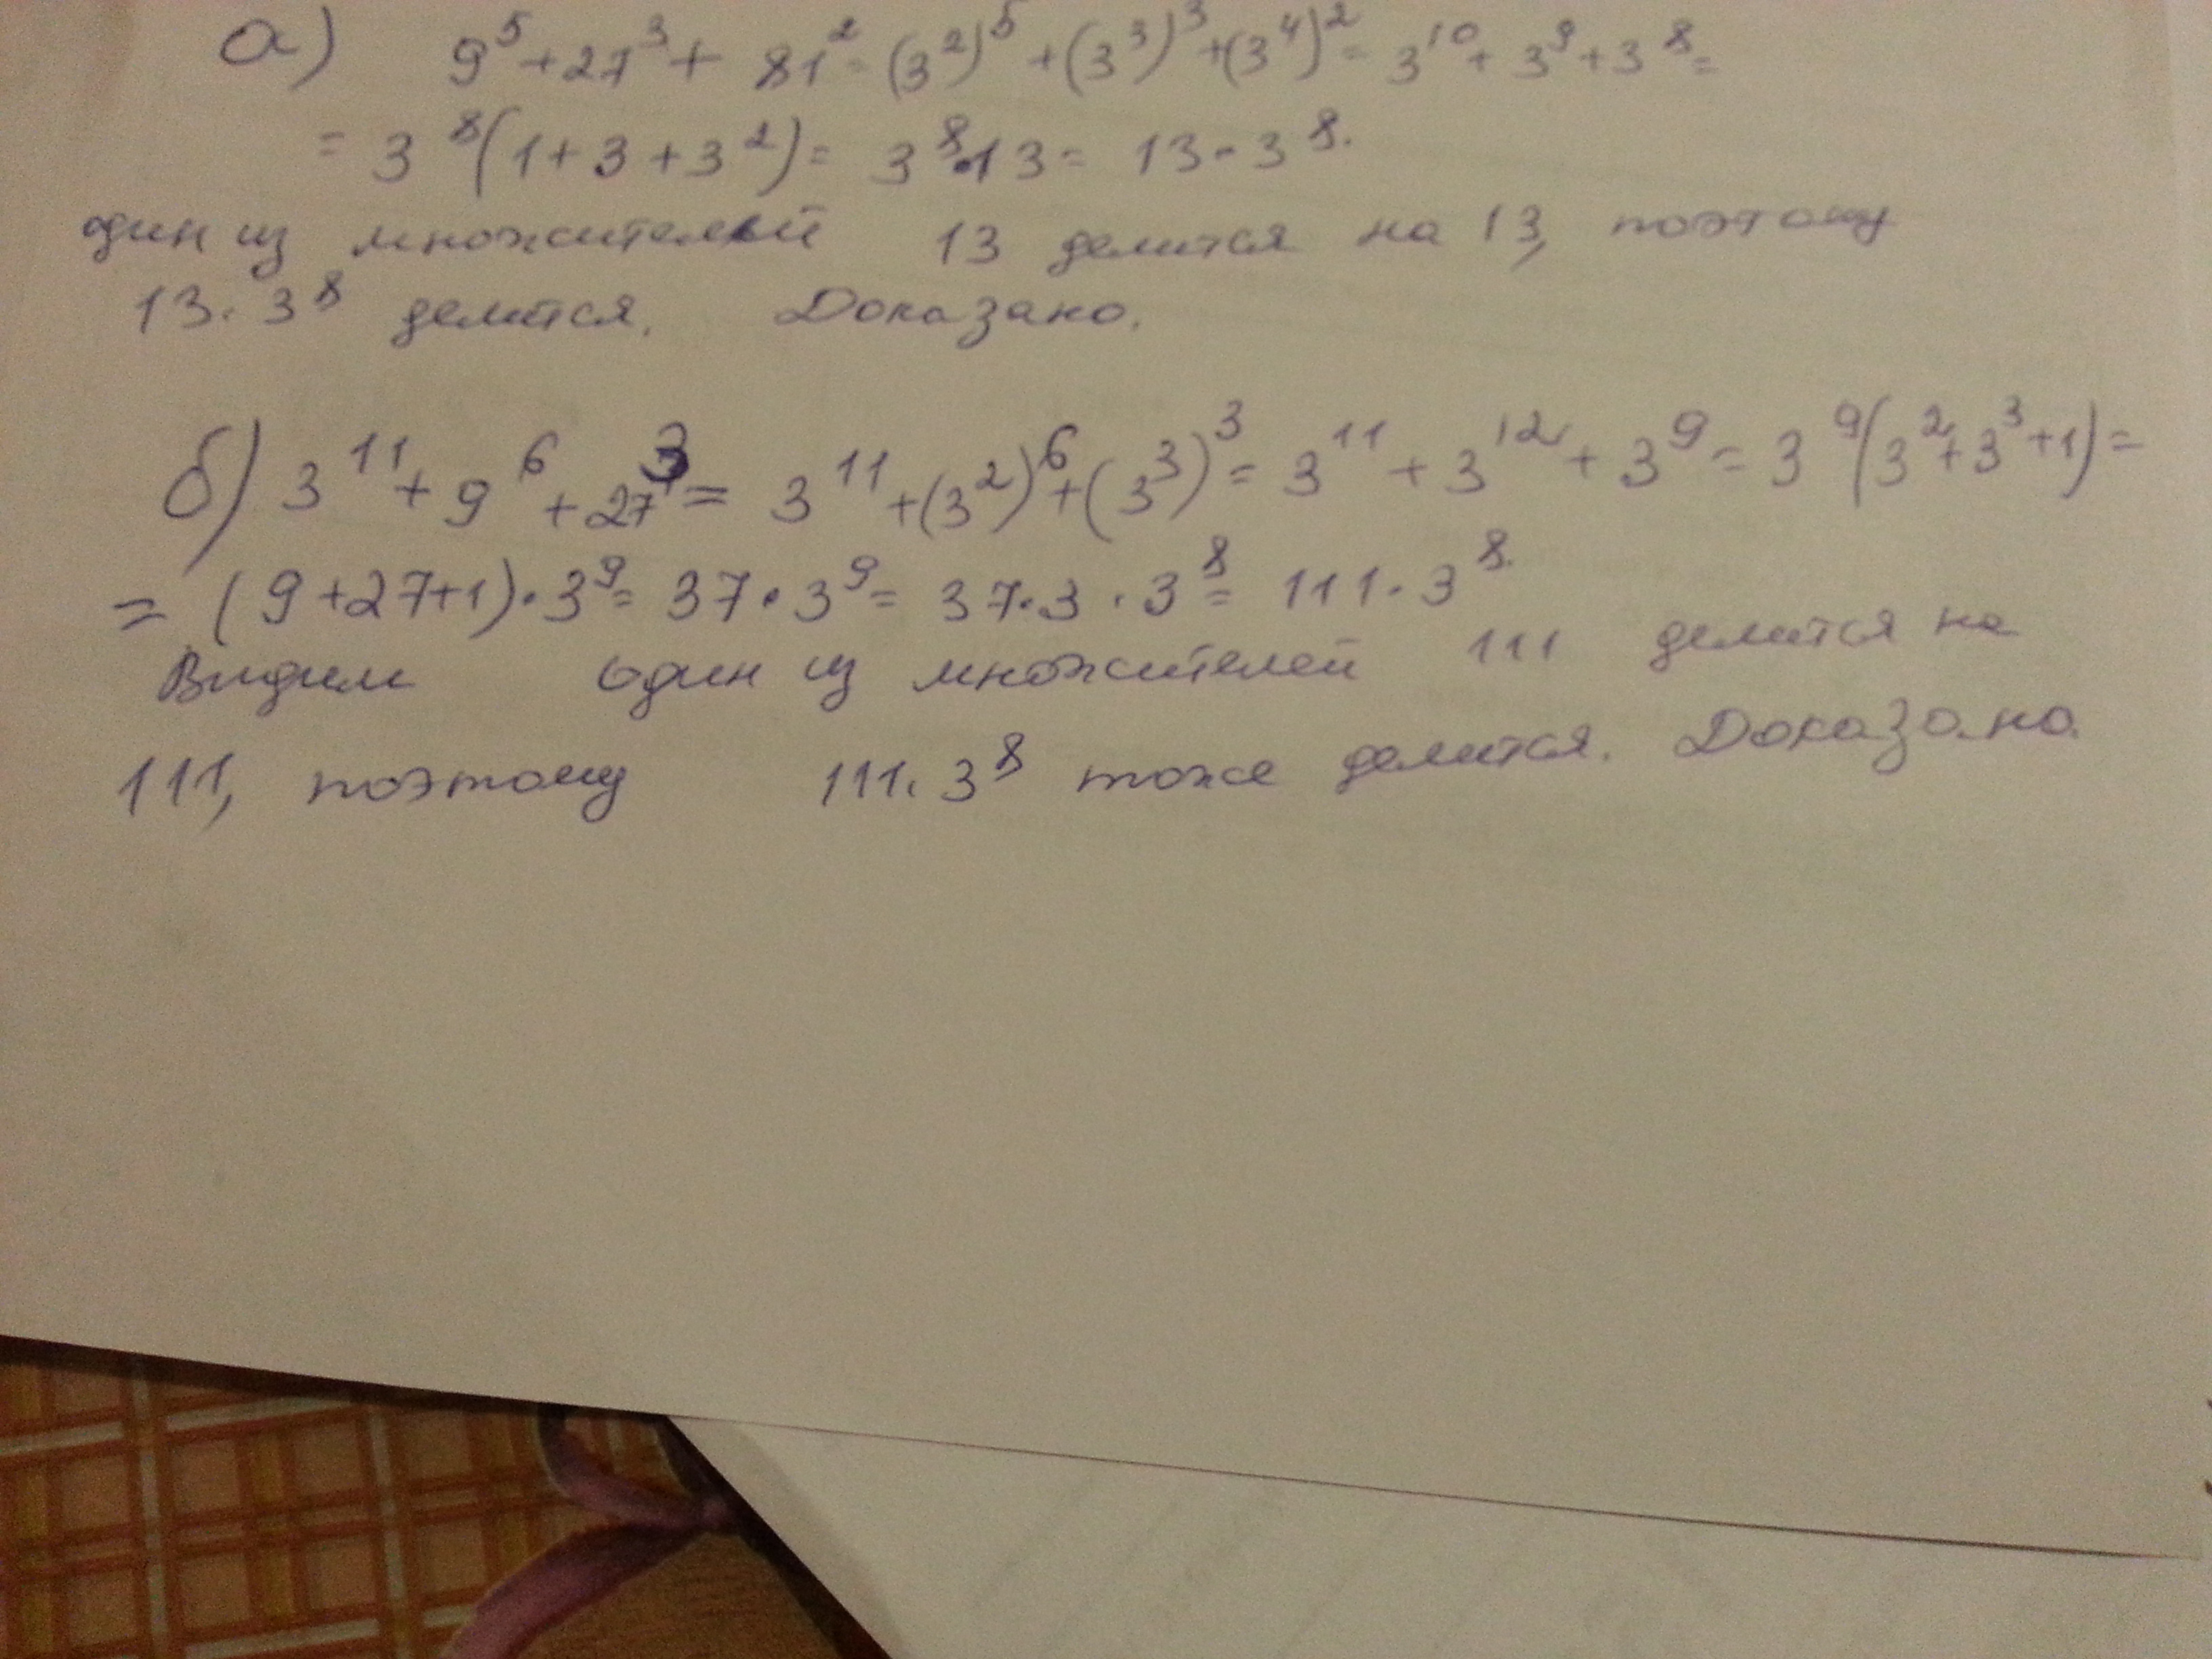 а) 9⁵+27³+81²=(3²)⁵+(3³)³+(3⁴)²=3¹⁰+3⁹+3⁸=
=3⁸(1+3+3²)=3⁸·13=13·3⁸.
один из множителей 13 делится на 13, поэтому
13·3⁸ делится. Доказано.
б) 3¹¹+9⁶+27³=3¹¹+(3²)⁶+(3³)³=3¹¹+3¹²+3⁹=3⁹(3²+3³+1)=
=(9+27+1)·3⁹=37·3⁹=37·3·3⁸=111·3⁸.
Видим один из множителей 111 делится на
111, поэтому 111·3⁸ тоже делится. Доказано.